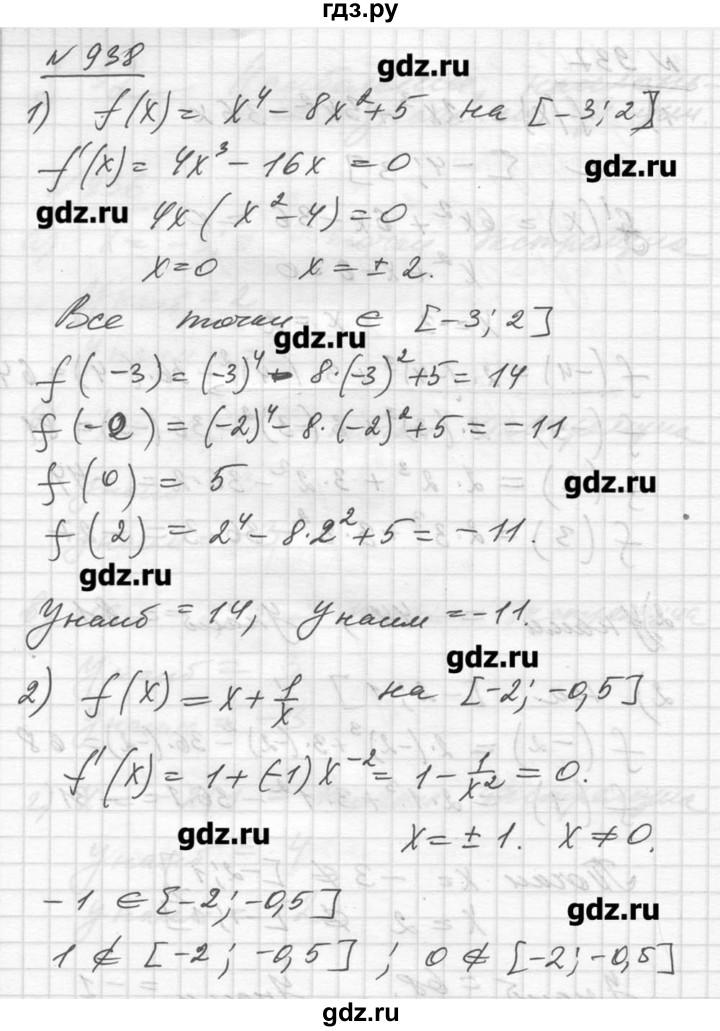 гдз.ру
№ 938
gdz.ru
1) f(x) = x⁴ − 8x² + 5 на [−3; 2]
f'(x) = 4x³ − 16x = 0
gdz.ru
gdz.ru
4x(x² − 4) = 0
x = 0 x = ± 2.
Все точки ∈ [−3; 2]
gdz.ru
f(−3) = (−3)⁴ − 8·(−3)² + 5 = 14
f(−2) = (−2)⁴ − 8·(−2)² + 5 = −11
f(0) = 5
gdz.ru
f(2) = 2⁴ − 8·2² + 5 = −11.
gdz.ru
Унаиб = 14, Унаим = −11.
gdz.ru
2) f(x) = x + 1/x на [−2; −0,5]
f'(x) = 1 + (−1)x⁻² = 1 − 1/x² = 0.
gdz.ru
x = ± 1. x ≠ 0.
−1 ∈ [−2; −0,5]
gdz.ru
1 ∉ [−2; −0,5] ; 0 ∉ [−2; −0,5]
gdz.ru